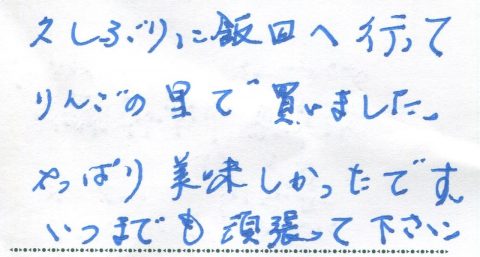 久しぶりに飯田へ行って
りんごの里で買いました。
やっぱり美味しかったです。
いつまでも頑張って下さい